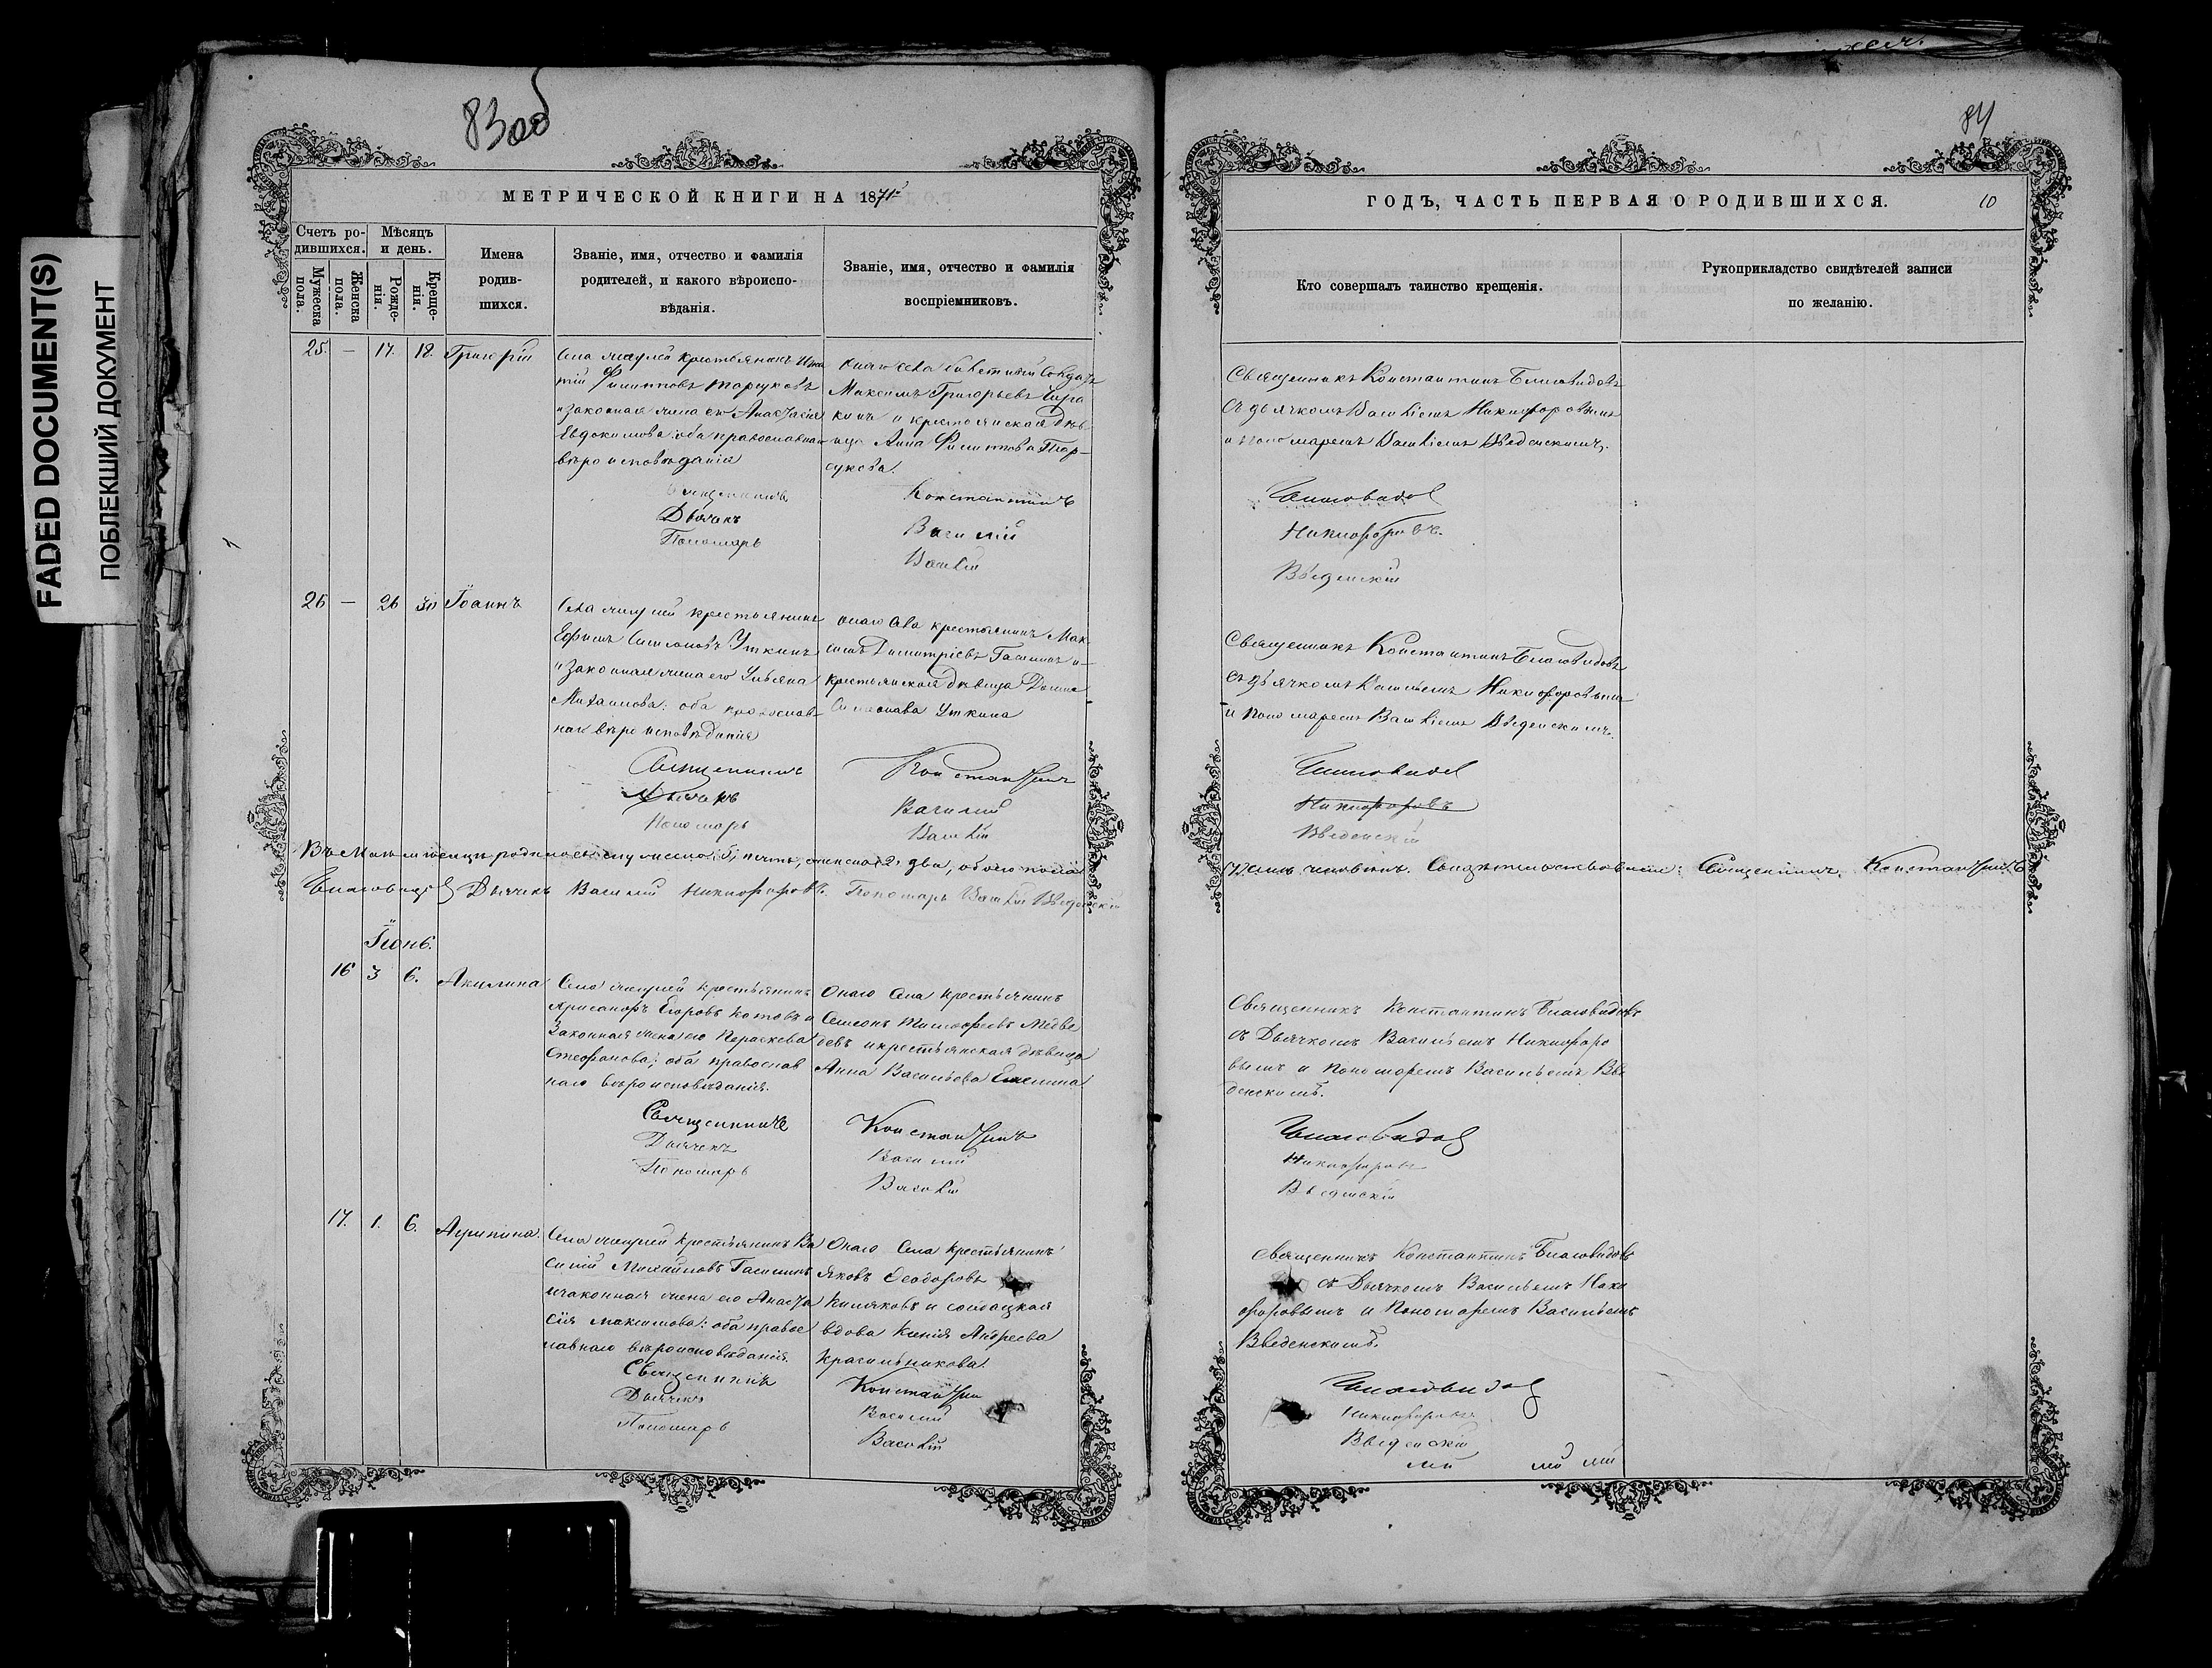 FADED DOCUMENT(S)
ПОБЛЕКШИЙ ДОКУМЕНТ
83об
84
МЕТРИЧЕСКОЙ КНИГИ НА 1871й
ГОДЪ, ЧАСТЬ ПЕРВАЯ О РОДИВШИХСЯ.
10
Счетъ родившихся.
Мужеска пола.
Женска пола.
Мѣсяцъ и день.
Рожденія.
Крещенія.
Имена родившихся.
Званіе, имя, отчество и фамилія
родителей, и какого вѣроисповѣданія.
Званіе, имя, отчество и фамилія
воспріемниковъ.
Кто совершалъ таинство крещенія.
Рукоприкладство свидѣтелей записи
по желанію.
25. — 17. 18. Григорій
крестьянинъ
тій Филипповъ
и законная жена его Анастасія
Евдокимова: оба православнаго
вѣроисповѣданія
Максимъ Григорьевъ
и крестьянская дѣвица
Анна Филиппова
Священникъ Константинъ Благовидовъ
съ дьячкомъ Василіемъ Никифоровымъ
и пономаремъ Василіемъ Введенскимъ.
Священникъ Константинъ Благовидовъ
Дьячекъ Василій Никифоровъ.
Пономарь Василій Введенскій
26 — 26 30 Іоаннъ
Села крестьянинъ
Ефимъ Симоновъ Уткинъ
и законная жена его Ульяна
Михаилова: оба православнаго
вѣроисповѣданія
онаго села крестьянинъ Максимъ
Димитріевъ Гасилинъ и
крестьянская дѣвица
Уткина
Священникъ Константинъ Благовидовъ
съ дьячкомъ Василіемъ Никифоровымъ
и пономаремъ Василіемъ Введенскимъ.
Священникъ Константинъ Благовидовъ
Дьячекъ Василій Никифоровъ
Пономарь Василій Введенскій
Въ Маѣ мѣсяцѣ родилось мужеска 5, пять, женска 2, два, обоего пола
семь человѣкъ. Свидѣтельствовали: Священникъ Константинъ
Благовидовъ Дьячекъ Василій Никифоровъ. Пономарь Василій Введенскій
Іюнь.
16 3 6. Акулина
Села крестьянинъ
Егоровъ Котовъ и
законная жена его Параскева
Стефанова; оба православнаго
вѣроисповѣданія.
Онаго села крестьянинъ
Семенъ Тимофеевъ Медведевъ
и крестьянская дѣвица
Анна Васильева
Священникъ Константинъ Благовидовъ
съ Дьячкомъ Васильемъ Никифоровымъ
и Пономаремъ Васильемъ Введенскимъ.
Священникъ Константинъ Благовидовъ
Дьячекъ Василій Никифоровъ
Пономарь Василій Введенскій
17. 1. 6. Агрипина.
Села крестьянинъ Василій
Михайловъ Гасилинъ
и законная жена его Анастасія
Максимова: оба православнаго
вѣроисповѣданія.
Онаго села крестьянинъ
Яковъ Феодоровъ
и солдацкая
вдова Ксенія Андреева
Красильникова.
Священникъ Константинъ Благовидовъ
съ Дьячкомъ Васильемъ Никифоровымъ
и Пономаремъ Васильемъ
Введенскимъ.
Священникъ Константинъ Благовидовъ
Дьячекъ Василій Никифоровъ
Пономарь Василій Введенскій